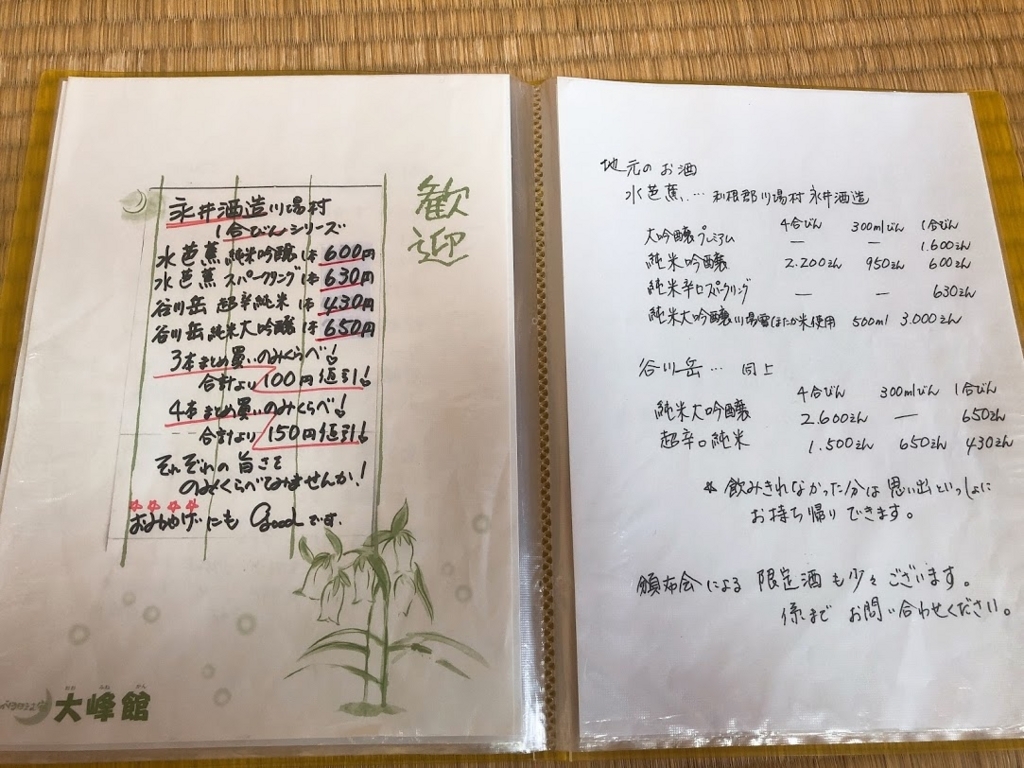 歓迎
永井酒造川場村
1合びんシリーズ
水芭蕉 純米吟醸 1本 600円
水芭蕉 スパークリング 1本 630円
谷川岳 超辛純米 1本 430円
谷川岳 純米大吟醸 1本 650円
3本まとめ買いのみくらべ!
合計より100円値引!
4本まとめ買いのみくらべ!
合計より150円値引!
それぞれの旨さを
のみくらべてみませんか!
おみやげにも Goodです.
大峰館
おお みね かん
地元のお酒
水芭蕉… 利根郡川場村 永井酒造
4合びん 300mlびん 1合びん
大吟醸プレミアム — — 1.600えん
純米吟醸 2.200えん 950えん 600えん
純米辛口スパークリング — — 630えん
純米大吟醸川場雪ほたか米使用 500ml 3.000えん
谷川岳… 同上
4合びん 300mlびん 1合びん
純米大吟醸 2.600えん — 650えん
超辛口純米 1.500えん 650えん 430えん
☆ 飲みきれなかった分は思い出といっしょに
お持ち帰りできます。
頒布会による 限定酒も少々ございます。
係まで お問い合わせください。